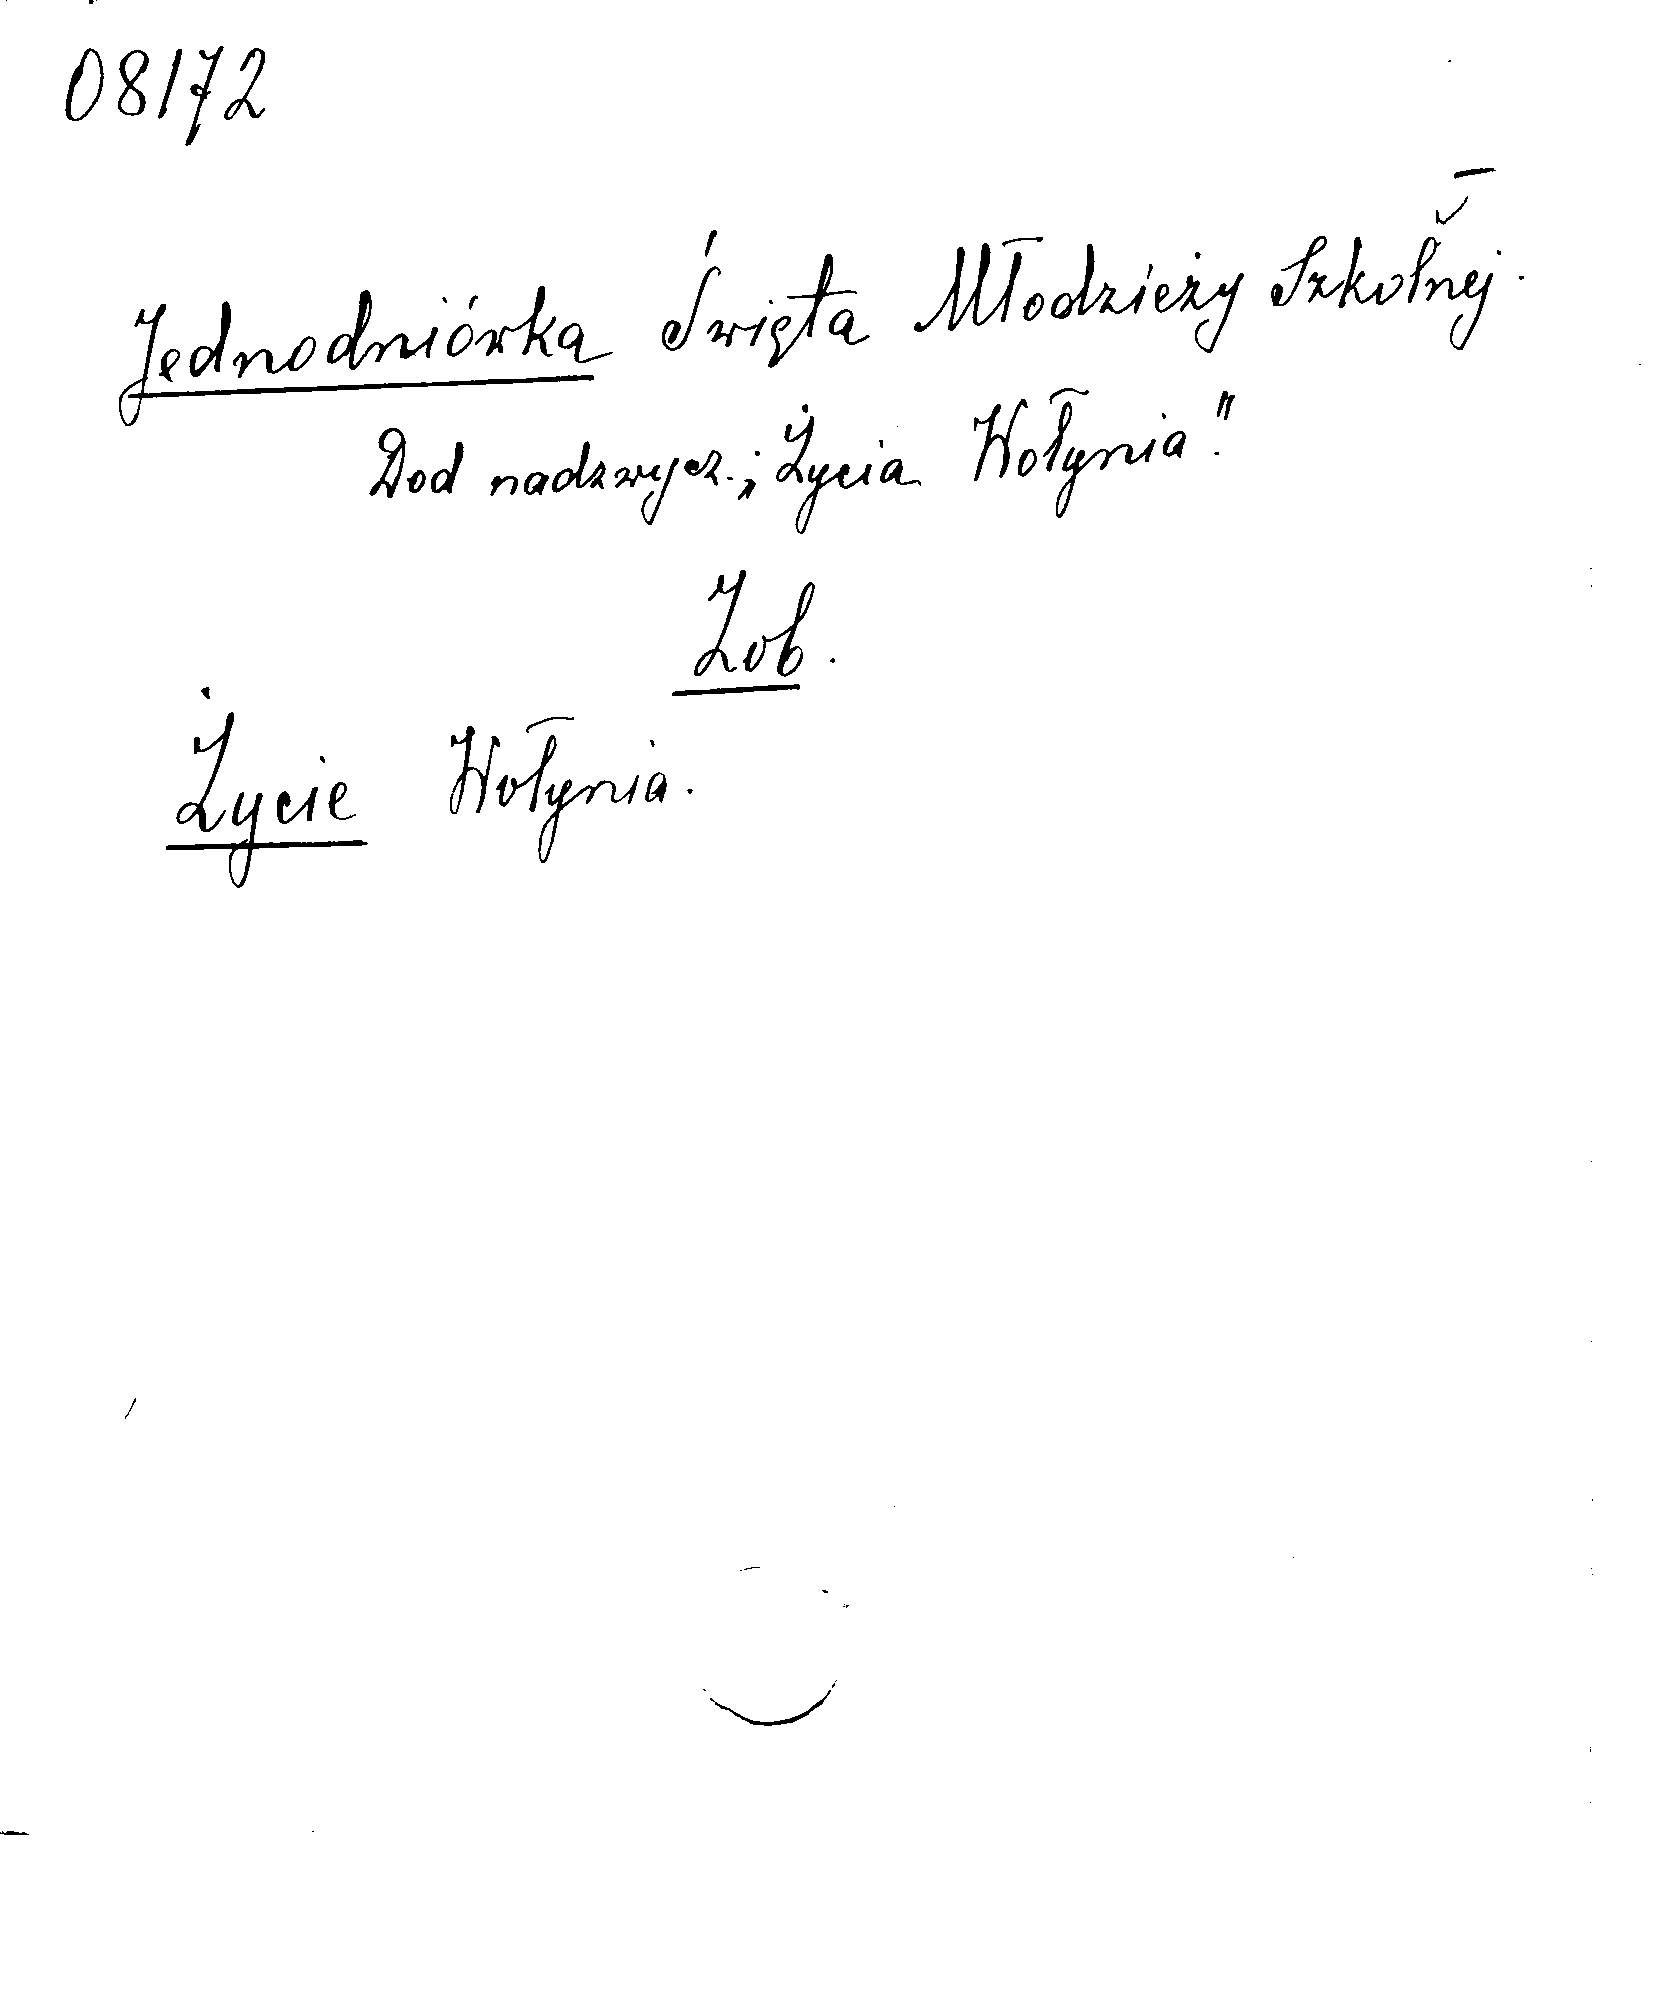 08172
Jednodniówka Święta Młodzieży Szkolnej.
Dod nadzwycz. „Życia Wołynia".
Zob.
Życie Wołynia.